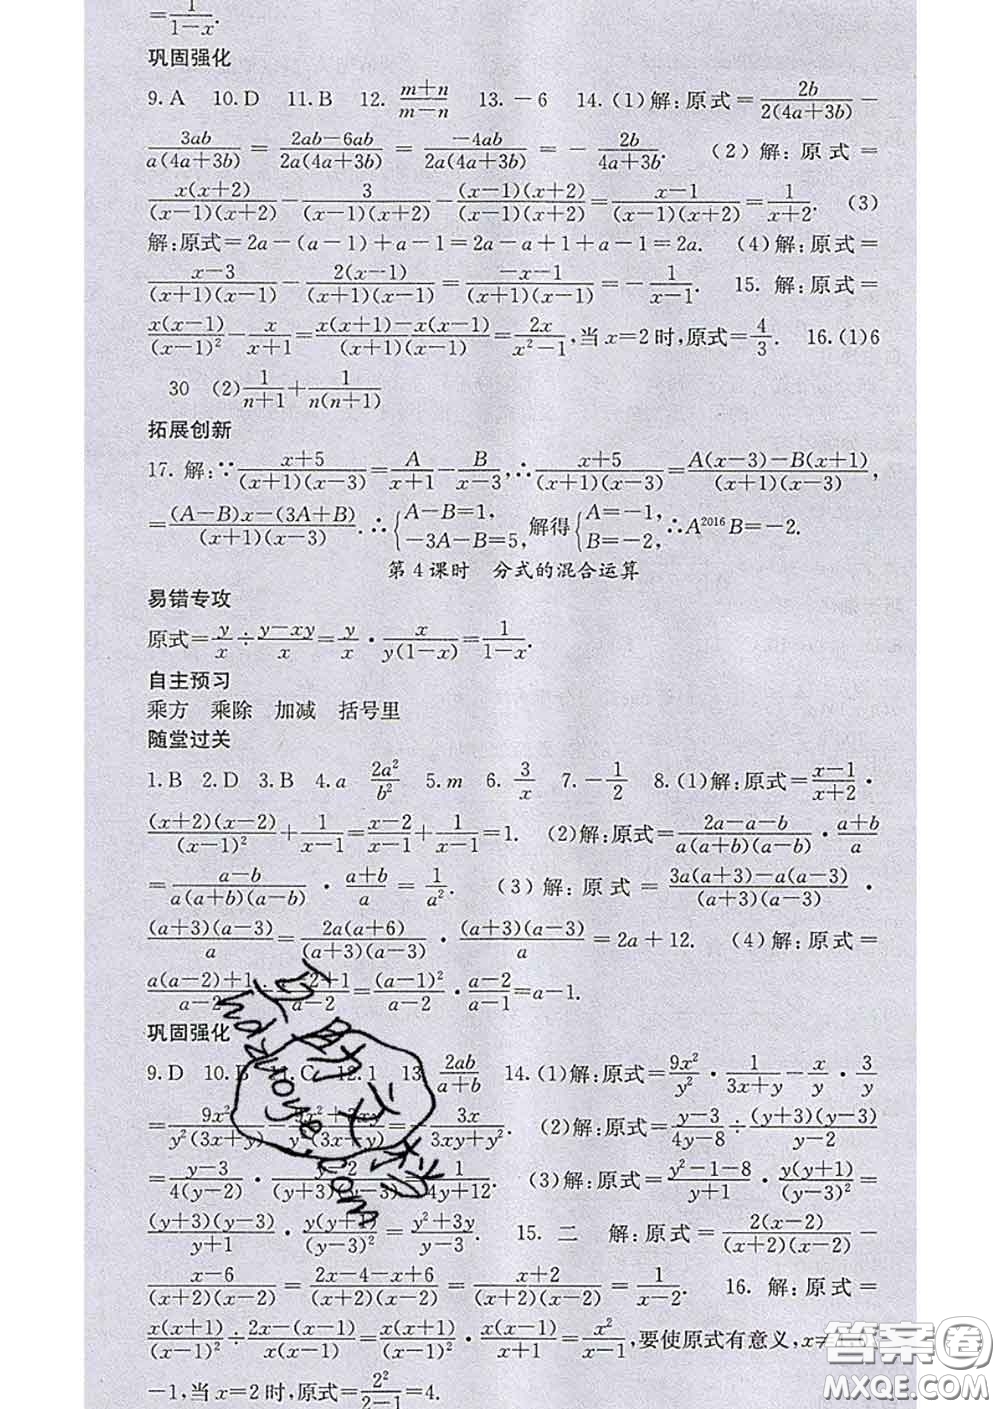 =1/(1-x).
巩固强化
9. A 10. D 11. B 12. (m+n)/(m-n) 13. -6 14. (1)解:原式=2b/(2(4a+3b)) -
3ab/(a(4a+3b)) = (2ab-6ab)/(2a(4a+3b)) = (-4ab)/(2a(4a+3b)) = -2b/(4a+3b). (2)解:原式=
x(x+2)/((x-1)(x+2)) - 3/((x-1)(x+2)) - (x-1)(x+2)/((x-1)(x+2)) = (x-1)/((x-1)(x+2)) = 1/(x+2). (3)
解:原式=2a-(a-1)+a-1=2a-a+1+a-1=2a. (4)解:原式=
(x-3)/((x+1)(x-1)) - 2(x-1)/((x+1)(x-1)) = (-x-1)/((x+1)(x-1)) = -1/(x-1). 15. 解:原式=
x(x-1)/(x-1)² - x/(x+1) = (x(x+1)-x(x-1))/((x+1)(x-1)) = 2x/(x²-1),当x=2时,原式=4/3. 16. (1)6
30 (2)1/(n+1) + 1/(n(n+1))
拓展创新
17. 解:∵(x+5)/((x+1)(x-3)) = A/(x+1) - B/(x-3),∴(x+5)/((x+1)(x-3)) = (A(x-3)-B(x+1))/((x+1)(x-3)),
=((A-B)x-(3A+B))/((x+1)(x-3)). ∴{A-B=1, -3A-B=5, 解得{A=-1, B=-2. ∴A²⁰¹⁶B=-2.
第4课时 分式的混合运算
易错专攻
原式=y/x÷(y-xy)/x=y/x·x/(y(1-x))=1/(1-x).
自主预习
乘方 乘除 加减 括号里
随堂过关
1. B 2. D 3. B 4. a 2a²/b² 5. m 6. 3/x 7. -1/2 8. (1)解:原式=(x-1)/(x+2)·
(x+2)(x-2)/(x-1)² + 1/(x-1) = (x-2)/(x-1) + 1/(x-1) = 1. (2)解:原式=(2a-a-b)/(a(a+b)(a-b))·(a+b)/a
=(a-b)/(a(a+b)(a-b))·(a+b)/a=1/a². (3)解:原式=(3a(a+3)-a(a-3))/((a+3)(a-3))·
(a+3)(a-3)/a=2a(a+6)/((a+3)(a-3))·(a+3)(a-3)/a=2a+12. (4)解:原式=
(a(a-2)+1)/(a-2) -2+1/(a-2)=(a-1)²/(a-2)·(a-2)/(a-1)=a-1.
巩固强化
9. D 10. B 11. C 12. 1 13. 2ab/(a+b) 14. (1)解:原式=9x²/y²·1/(3x+y)-x/y·3/y
=9x²/(y²(3x+y))-(9x²+3xy)/(y²(3x+y))=-3x/(3xy+y²). (2)解:原式=(y-3)/(4y-8)÷(y+3)(y-3)/(y-2)
=(y-3)/(4(y-2))·(y-2)/((y+3)(y-3))=1/(4y+12). (3)解:原式=(y²-1-8)/(y+1)·y(y+1)/(y-3)²=
(y+3)(y-3)/(y+1)·y(y+1)/(y-3)²=(y²+3y)/(y-3). 15. 二 解:原式=2(x-2)/((x+2)(x-2))-
(x-6)/((x+2)(x-2))=(2x-4-x+6)/((x+2)(x-2))=(x+2)/((x+2)(x-2))=1/(x-2). 16. 解:原式=
x(x+1)/(x-1)²÷(2x-(x-1))/(x(x-1))=x(x+1)/(x-1)²·x(x-1)/(x+1)=x²/(x-1),要使原式有意义,x≠
-1,当x=2时,原式=2²/(2-1)=4.
答案圈
MXQE.COM